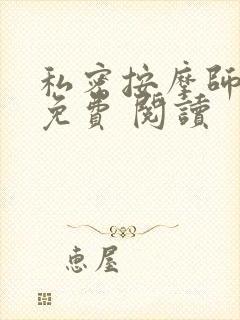 私密按摩師
免費 閱讀
恵屋